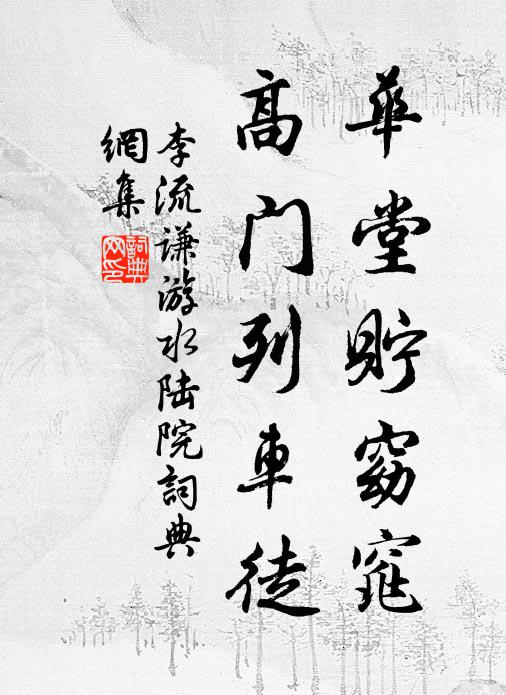 華堂貯窈窕
高门列車徒
李流谦游水陆院詞典
網集
詞典
网印